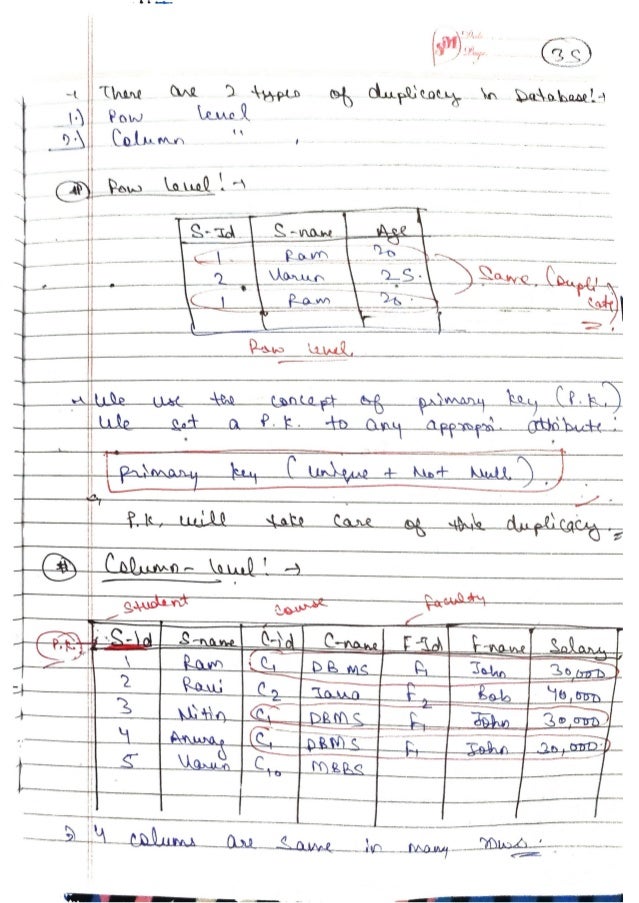 Date
Page
35
There are 2 types of duplicacy in Database!→
1.) Row level
2.) Column "
# Row level!→
S-Id S-name Age
1 Ram 20
2 Varun 25
1 Ram 20
Same. (Dupli
cate)
Row level
We use the concept of primary key (P.K.)
We set a P.K. to any appropri. attribute.
Primary key (Unique + Not Null).
P.K. will take care of this duplicacy.
# Column-level!→
Student Course Faculty
P.K. S-id S-name C-id C-name F-Id F-name Salary
1 Ram C1 DBMS F1 John 30,000
2 Ravi C2 Java F2 Bob 40,000
3 Nitin C1 DBMS F1 John 30,000
4 Anurag C1 DBMS F1 John 30,000
5 Varun C10 MBBS
⇒ 4 colums are same in many rows.